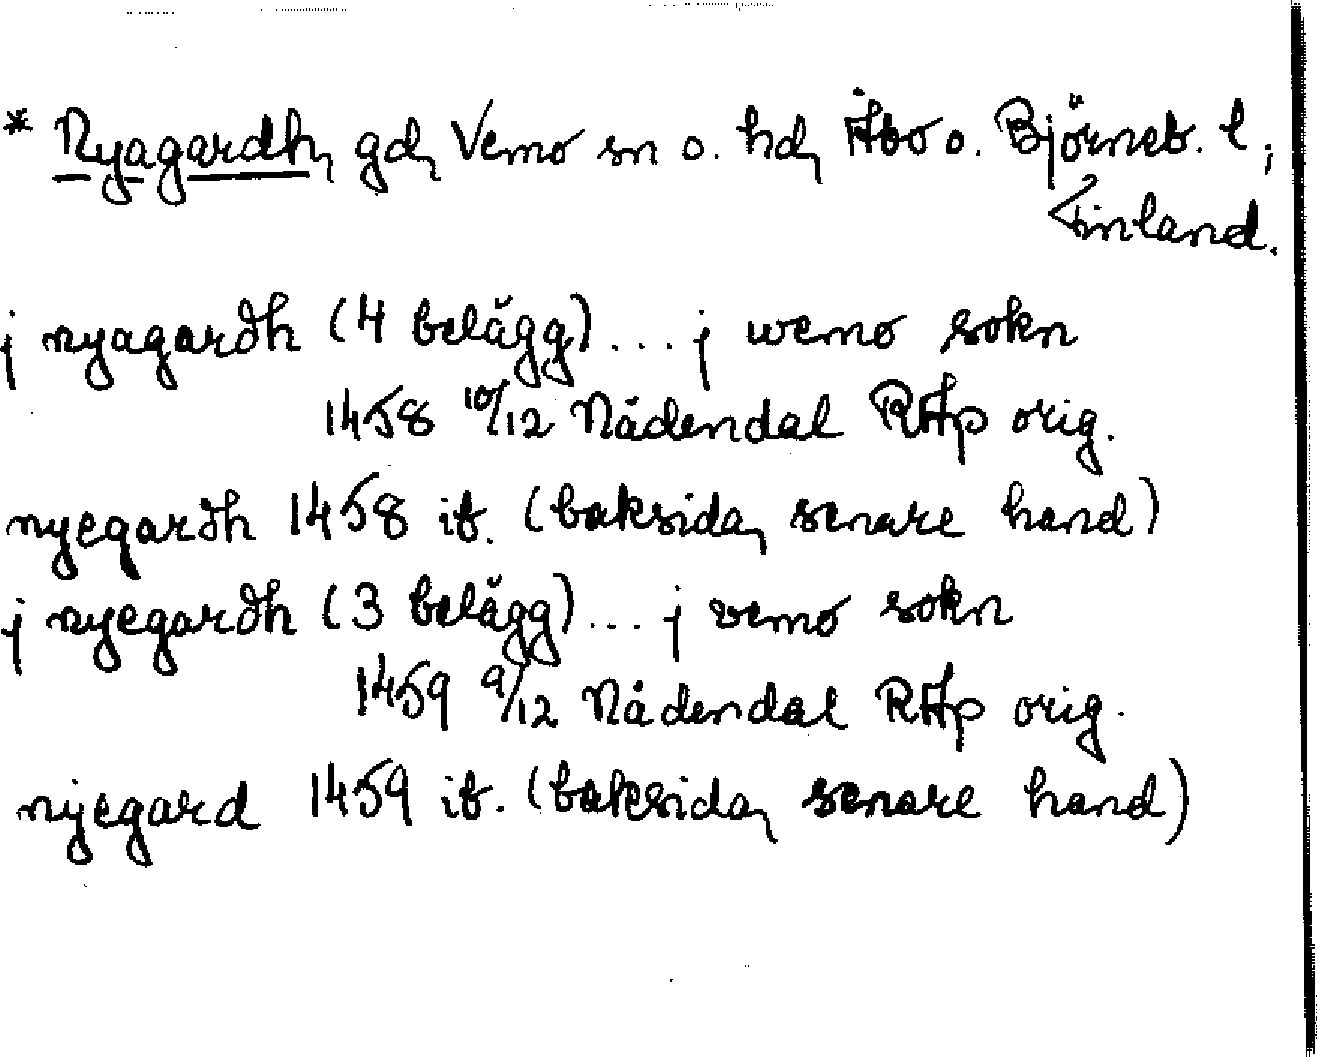 * Nyagardh, gd, Vemo sn o. hd, Åbo o. Björneb. l;
Finland.
j nyagardh (4 belägg)... j wemo sokn
1458 10/12 Nådendal RAp orig.
nyegardh 1458 ib. (baksida, senare hand)
j nyegardh (3 belägg)... j vemo sokn
1459 9/12 Nådendal RAp orig.
nyegard 1459 ib. (baksida, senare hand)